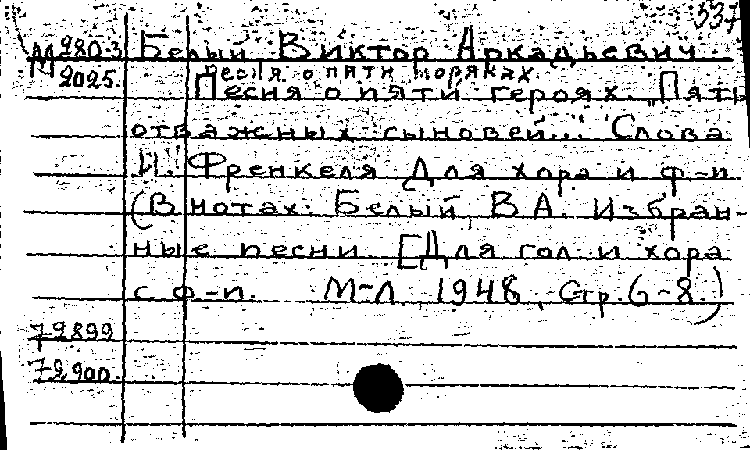 537
М 980-3 Белый Виктор Аркадьевич
2025. Песня о пяти моряках.
Песня о пяти героях. „Пять
отважных сыновей..." Слова
И. Френкеля Для хора и ф-п
(В нотах: Белый, В.А. Избран-
ные песни [Для гол. и хора
с ф-п. М-Л 1948, Стр. 6-8.)
79899
79900.